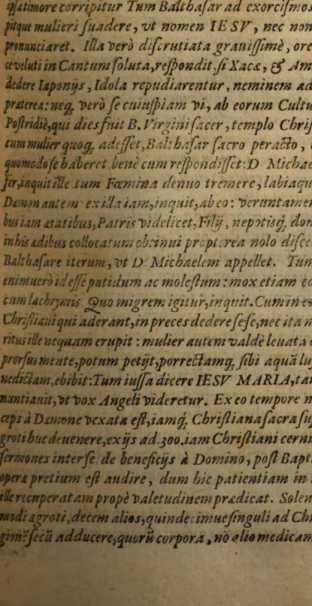 corripitur Tum Balthasar ad exorcismos
pitque mulieri suadere, vt nomen IESV, nec non
pronunciaret. Illa verò discrutiata grauissimè, ore
ceveluti in Cantum soluta, respondit, si Xacæ, & Am
dedere Iaponijs, Idola repudiarentur, neminem ad
præterea: neq, verò se cuiuspiam vi, ab eorum Cultu
Postridiè, qui dies fuit B. Virgini sacer, templo Chris
cum mulier quoq, adesset, Balthasar sacro peracto,
quomodo se haberet benè cum respondisset: D Michae
ser, inquit ille tum Fœmina denuo tremere, labiaqu
Dæmn autem exclaiam, inquit, ab eo: veruntamen
bus iam ætatibus, Patris videlicet, Filij, nepotisq, don
in his ædibus collocatum obtinui propterea nolo disce
Balthasare iterum, vt D Michaelem appellet. Tum
enimuerò id esse putidum ac molestum: mox etiam co
cum lachrymis Quo migrem igitur, inquit. Cum in e
Christiani qui aderant, in preces dedere sese, nec ita m
ritus ille nequam erupit: mulier autem valdè leuata
prorsus mente, potum petijt, porrectamq, sibi aquā lu
nedictam, ebibit: Tum iussa dicere IESV MARIA, ta
nuntiauit, vt vox Angeli videretur. Ex eo tempore n
ceps à Dæmone vexata est, iamq, Christiana sacra su
groti huc deuenere, ex ijs ad 300. iam Christiani cernu
sermones inter se de beneficijs à Domino, post Bapt
operæ pretium est audire, dum hic patientiam in
ille recuperatam propè valetudinem prædicat. Solen
modi ægroti, decem alios, quindecimue singuli ad Chr
secū adducere, quorū corpora, nō alio medicam